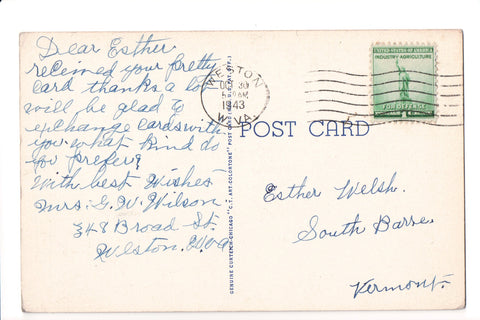 Dear Esther
received your pretty
card thanks a lot
will be glad to
exchange cards with
you what kind do
you prefer?
With best Wishes
Mrs. G. W. Wilson
348 Broad St.
Weston. W. Va
WESTON
OCT 30
1943
W. VA.
UNITED STATES OF AMERICA
INDUSTRY AGRICULTURE
FOR DEFENSE
1¢
POST CARD
GENUINE CURTEICH-CHICAGO "C.T. ART-COLORTONE" POST CARD
Esther Welsh.
South Barre
Vermont.